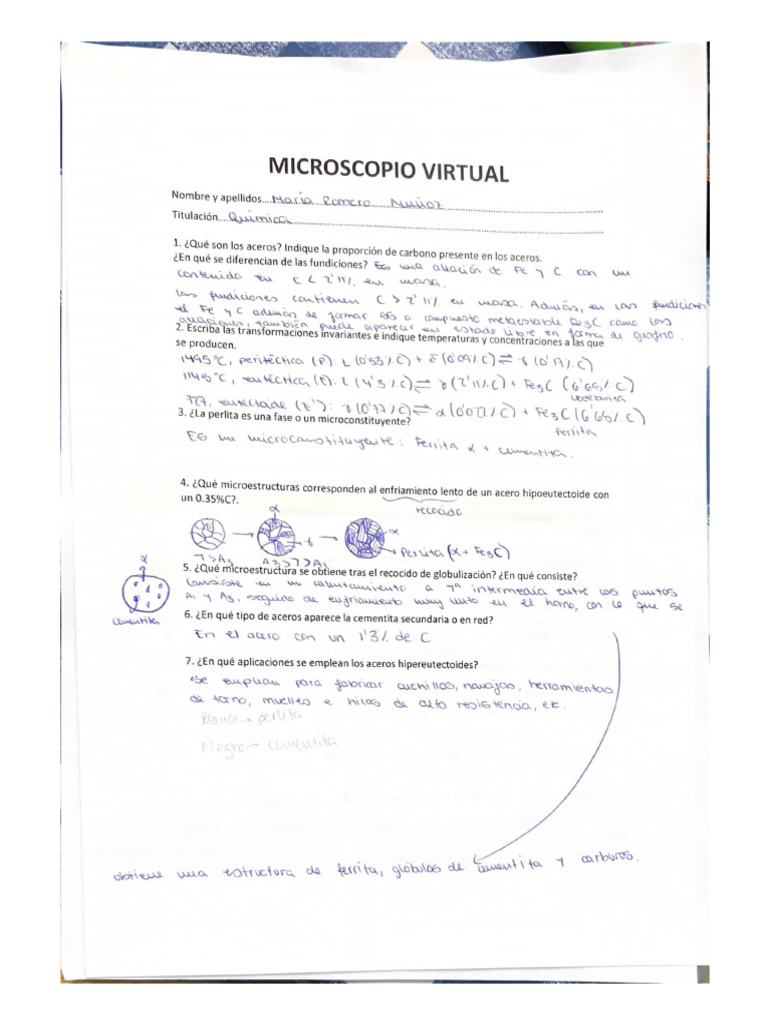 MICROSCOPIO VIRTUAL
Nombre y apellidos....María Romero Muñoz
Titulación....Química
1. ¿Qué son los aceros? Indique la proporción de carbono presente en los aceros.
¿En qué se diferencian de las fundiciones? Es una aleación de Fe y C con un
contenido en C < 2'11% en masa.
Las fundiciones contienen C > 2'11% en masa. Además, en las fundiciones
el Fe y C además de formar el compuesto metaestable Fe3C como las
aleaciones, también puede aparecer en estado libre en forma de grafito.
2. Escriba las transformaciones invariantes e indique temperaturas y concentraciones a las que
se producen.
1495ºC, peritéctica (P): L (0'53% C) + δ (0'09% C) ⇌ γ (0'17% C)
1148ºC, eutéctica (E): L (4'3% C) ⇌ γ (2'11% C) + Fe3C (6'68% C)
ledeburita
727, eutectoide (E'): γ (0'77% C) ⇌ α (0'022% C) + Fe3C (6'68% C)
perlita
3. ¿La perlita es una fase o un microconstituyente?
Es un microconstituyente: Ferrita α + cementita.
4. ¿Qué microestructuras corresponden al enfriamiento lento de un acero hipoeutectoide con
un 0.35%C?.
recocido
α
γ
α
Perlita (α + Fe3C)
T>A3
A3>T>A1
5. ¿Qué microestructura se obtiene tras el recocido de globulización? ¿En qué consiste?
Consiste en un calentamiento a Tª intermedia entre los puntos
A1 y A3, seguido de enfriamiento muy lento en el horno, con lo que se
α
cementita
6. ¿En qué tipo de aceros aparece la cementita secundaria o en red?
En el acero con un 1'3% de C
7. ¿En qué aplicaciones se emplean los aceros hipereutectoides?
Se emplean para fabricar cuchillos, navajas, herramientas
de torno, muelles e hilos de alta resistencia, etc.
Blanco → perlita
Negro → cementita
obtiene una estructura de ferrita, glóbulos de cementita y carburos.